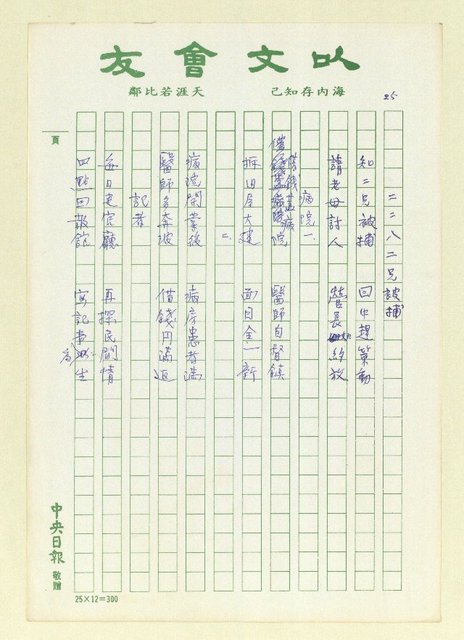 以文會友
海内存知己　天涯若比鄰
25
二二八二兄被捕
知二兄被捕　回中趕策動
請老母討人　營長始放
病院一
借錢蓋病院　醫師自督鎮
拆旧屋大建　面目全一新
二、
病院開業後　病床患者滿
醫師多奔波　借錢円滿返
記者
每日走官廳　再採民間情
四點回報館　寫記事為生
頁
中央日報 敬贈
25×12=300